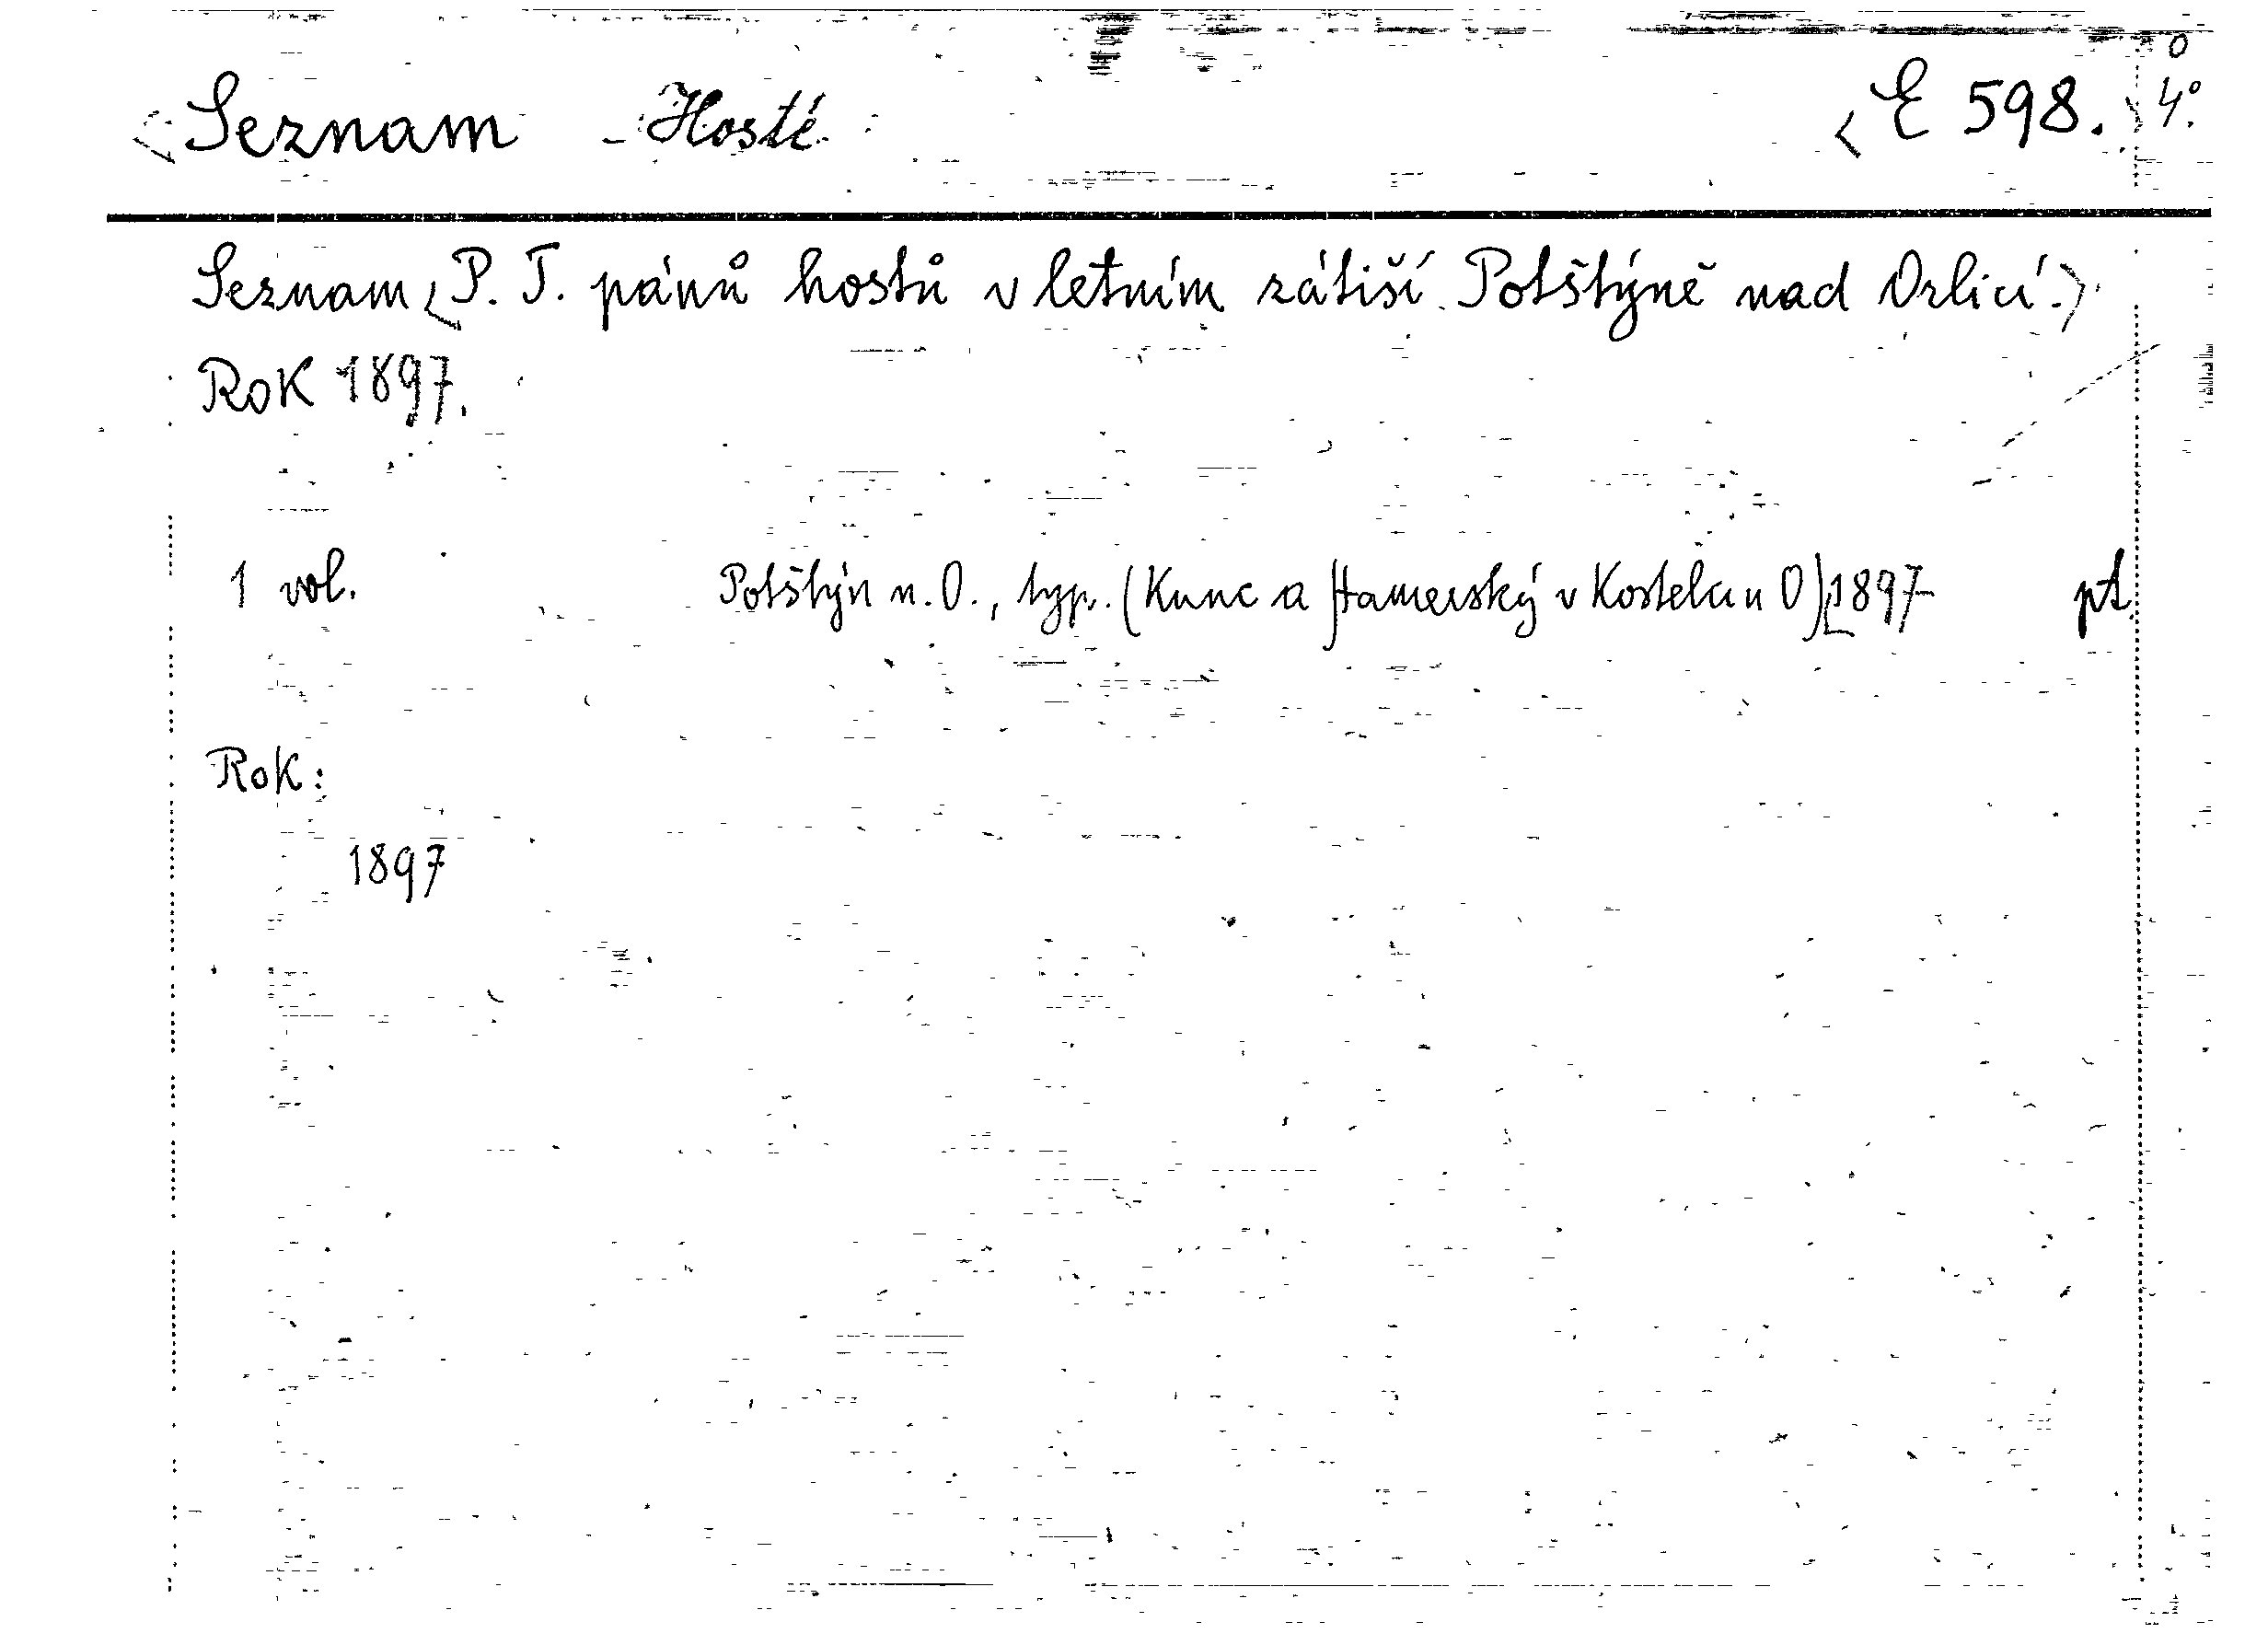 <Seznam - Hosté <E 598.> 4°.
Seznam <P. T. pánů hostů v letním zátiší Potštýně nad Orlicí.>
Rok 1897.
1 vol. Potštýn n. O., typ. (Kunc a Hamerský v Kostelci n O) 1897 pt.
Rok:
1897